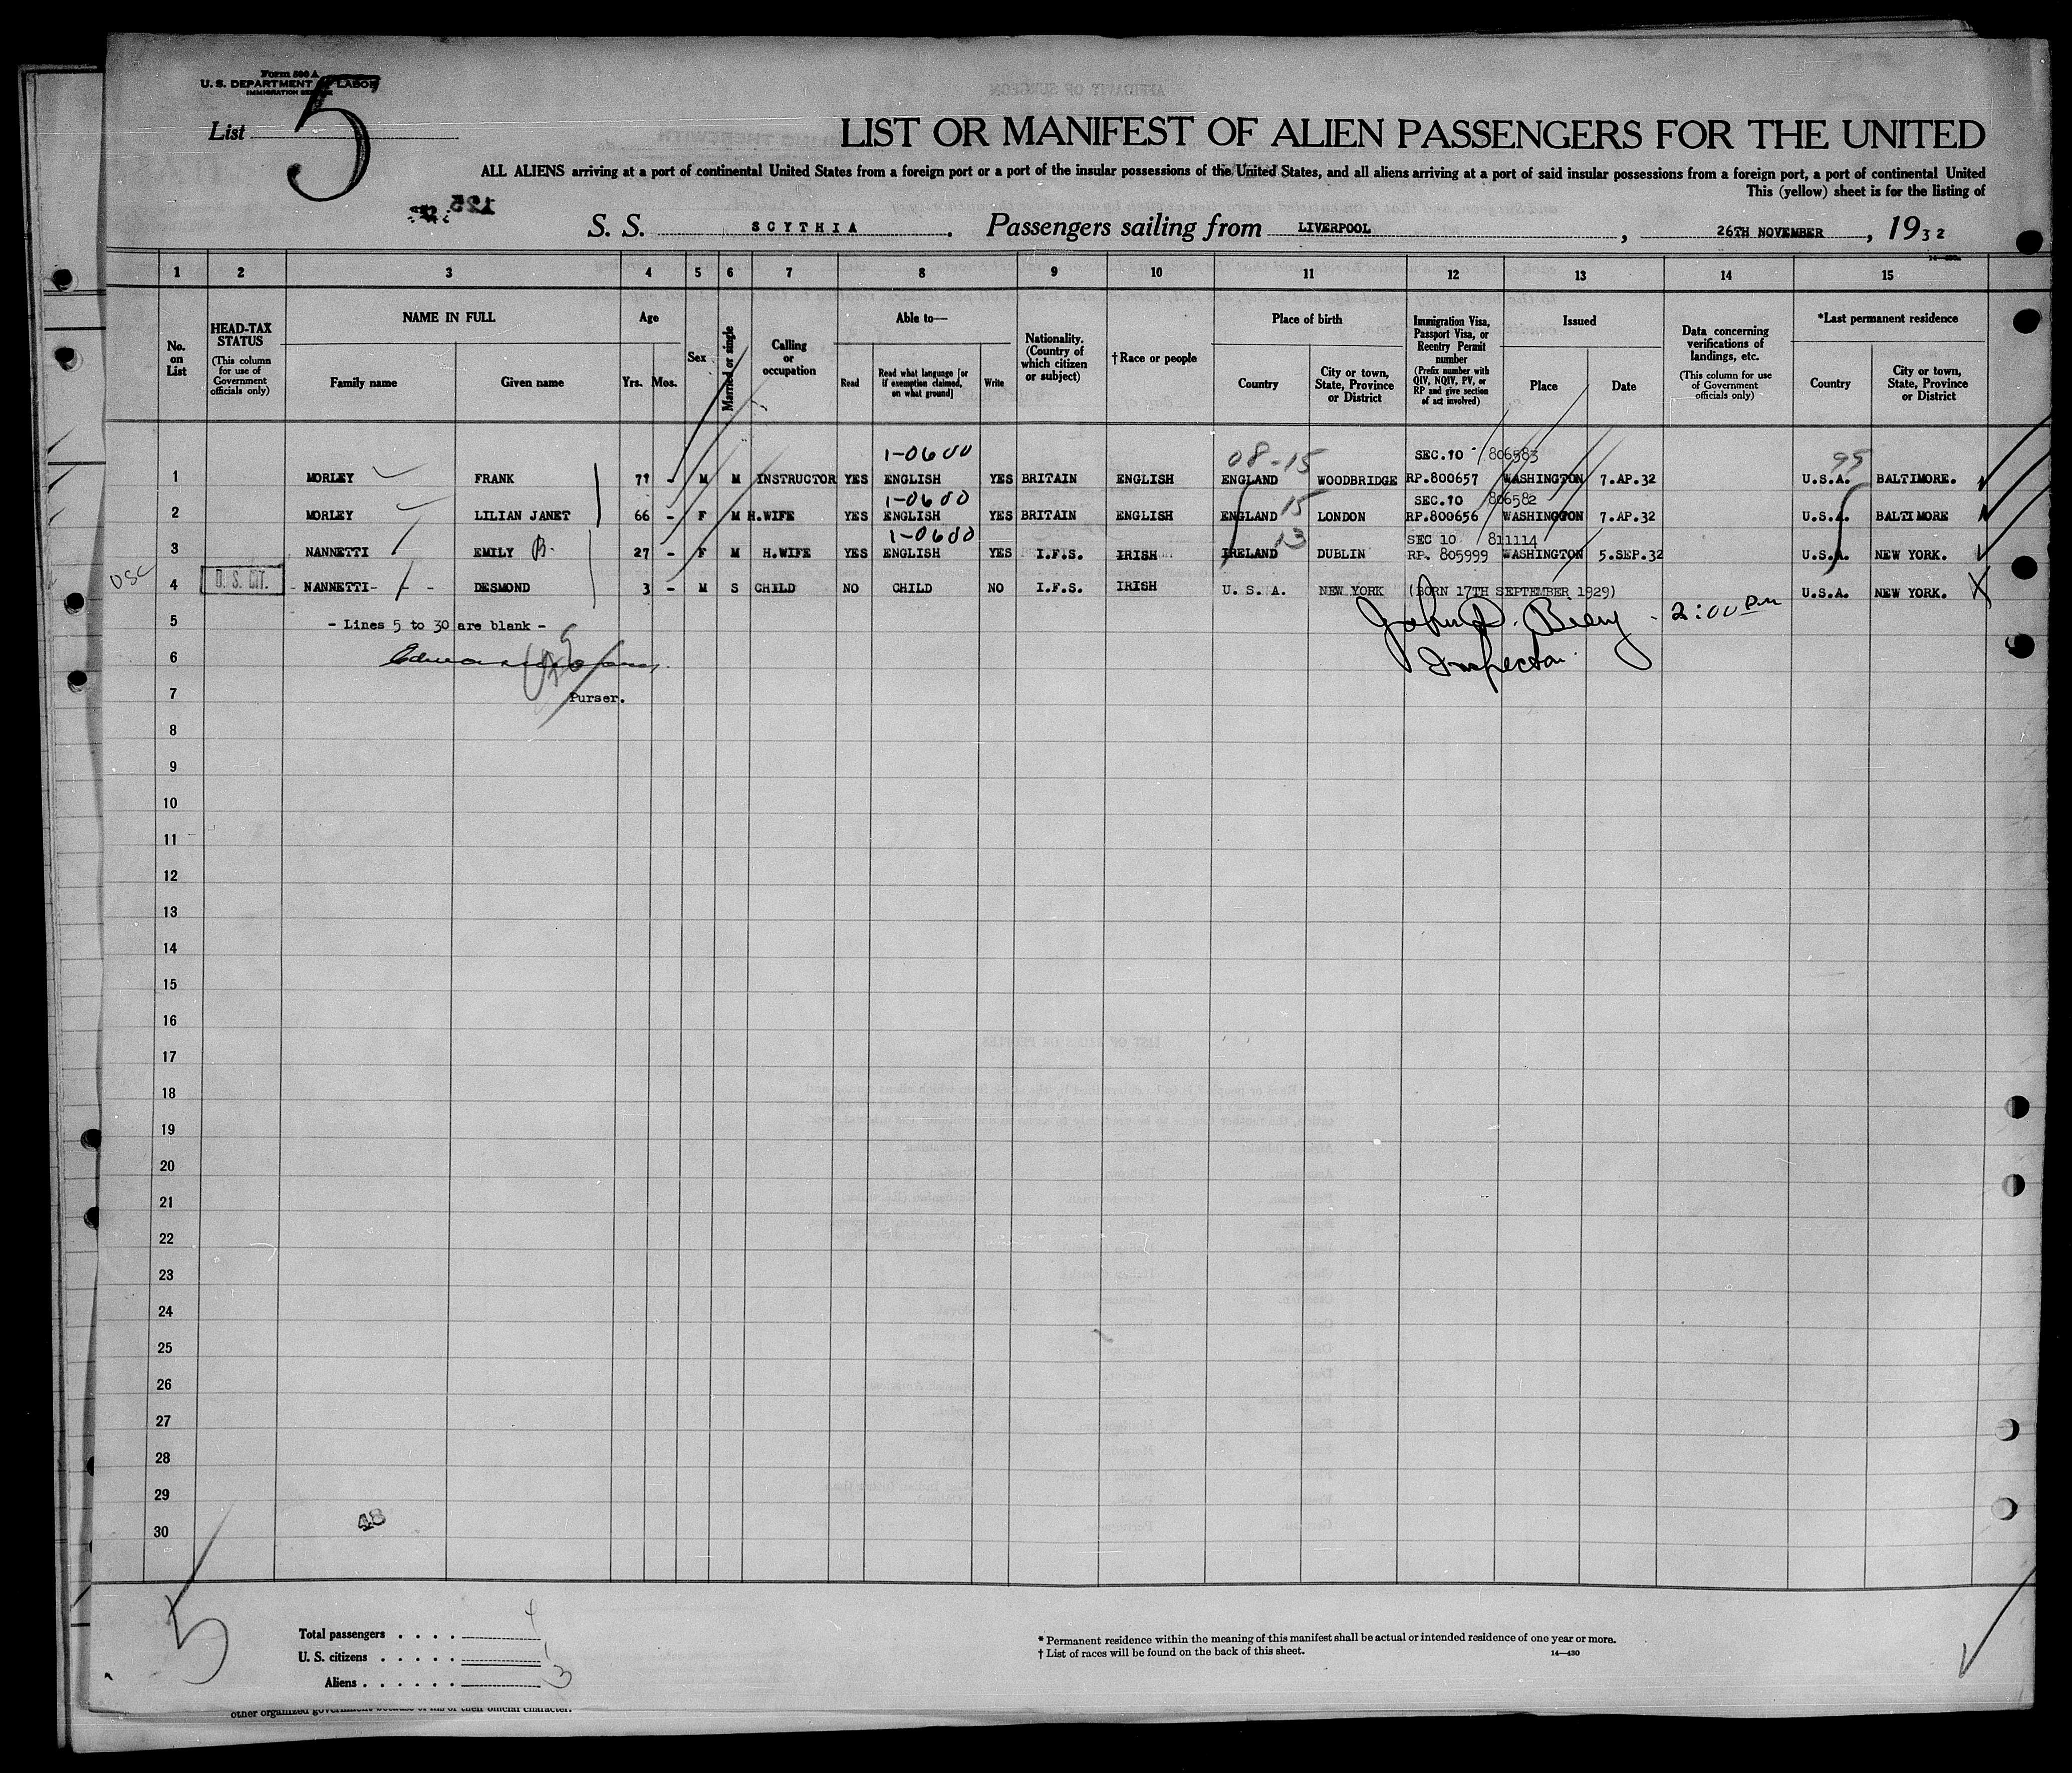 Form 500 A
U. S. DEPARTMENT OF LABOR
IMMIGRATION SERVICE
List 5
LIST OR MANIFEST OF ALIEN PASSENGERS FOR THE UNITED
ALL ALIENS arriving at a port of continental United States from a foreign port or a port of the insular possessions of the United States, and all aliens arriving at a port of said insular possessions from a foreign port, a port of continental United
This (yellow) sheet is for the listing of
S. S. SCYTHIA. Passengers sailing from LIVERPOOL, 26TH NOVEMBER, 1932
1 2 3 4 5 6 7 8 9 10 11 12 13 14 15
No. on List
HEAD-TAX STATUS (This column for use of Government officials only)
NAME IN FULL
Family name Given name
Age
Yrs. Mos.
Sex
Married or single
Calling or occupation
Able to—
Read Read what language [or if exemption claimed, on what ground] Write
Nationality. (Country of which citizen or subject)
†Race or people
Place of birth
Country City or town, State, Province or District
Immigration Visa, Passport Visa, or Reentry Permit number (Prefix number with QIV, NQIV, PV, or RP and give section of act involved)
Issued
Place Date
Data concerning verifications of landings, etc. (This column for use of Government officials only)
*Last permanent residence
Country City or town, State, Province or District
1-0600 08-15 SEC.10 806583 99
1 MORLEY FRANK 71 - M M INSTRUCTOR YES ENGLISH YES BRITAIN ENGLISH ENGLAND WOODBRIDGE RP.800657 WASHINGTON 7.AP.32 U.S.A. BALTIMORE.
1-0600 15 SEC.10 806582
2 MORLEY LILIAN JANET 66 - F M H.WIFE YES ENGLISH YES BRITAIN ENGLISH ENGLAND LONDON RP.800656 WASHINGTON 7.AP.32 U.S.A. BALTIMORE
1-0600 13 SEC 10 811114
3 NANNETTI EMILY B. 27 - F M H.WIFE YES ENGLISH YES I.F.S. IRISH IRELAND DUBLIN RP. 805999 WASHINGTON 5.SEP.32 U.S.A. NEW YORK.
USC
4 U. S. CIT. NANNETTI DESMOND 3 - M S CHILD NO CHILD NO I.F.S. IRISH U. S. A. NEW YORK (BORN 17TH SEPTEMBER 1929) U.S.A. NEW YORK. X
5 - Lines 5 to 30 are blank - 2:00 PM
6 Inspector.
7 Purser.
8
9
10
11
12
13
14
15
16
17
18
19
20
21
22
23
24
25
26
27
28
29
30
48
5
Total passengers . . . . 4
U. S. citizens . . . . . 1
Aliens . . . . . . 3
* Permanent residence within the meaning of this manifest shall be actual or intended residence of one year or more.
† List of races will be found on the back of this sheet.
14—430